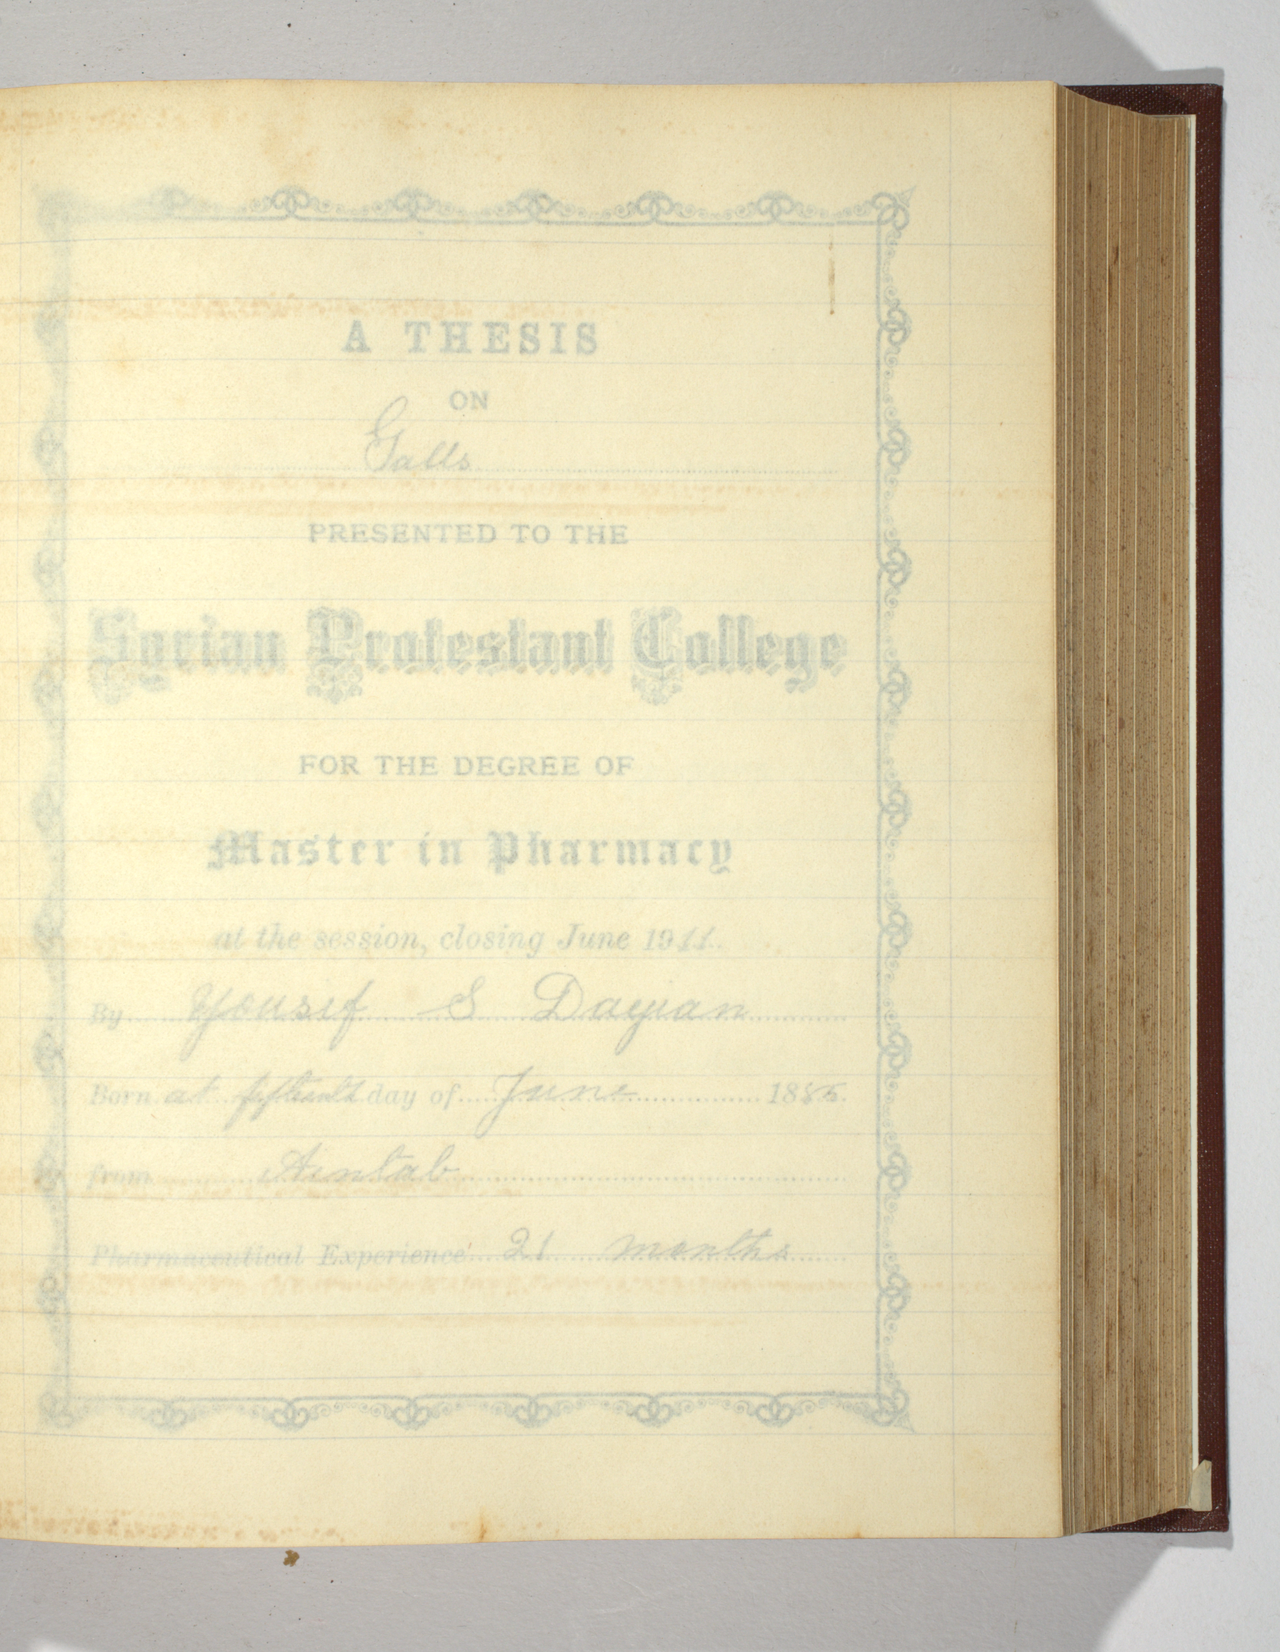 A THESIS
ON
Galls
PRESENTED TO THE
Syrian Protestant College
FOR THE DEGREE OF
Master in Pharmacy
at the session, closing June 1911.
By Yousif S Dayian
Born at fifteenth day of June 188
from Aintab
Pharmaceutical Experience 21 months